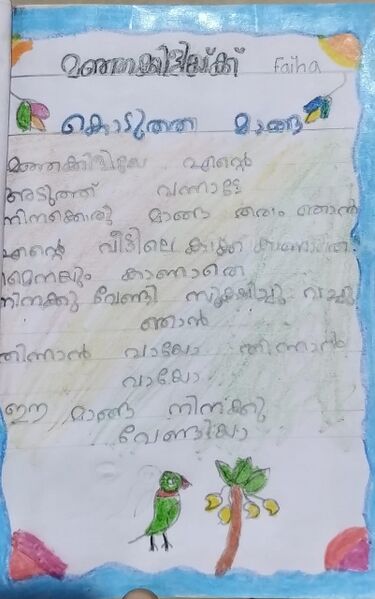 മഞ്ഞക്കിളിയ്ക്ക് Faiha
കൊടുത്ത മാങ്ങ
മഞ്ഞക്കിളിയേ എന്റെ
അടുത്ത് വന്നാട്ടേ
നിനക്കൊരു മാങ്ങ തരാം ഞാൻ
എന്റെ വീട്ടിലെ
കാണാതെ
നിനക്കു വേണ്ടി സൂക്ഷിച്ചു വച്ചു
ഞാൻ
തിന്നാൻ വായോ തിന്നാൻ
വായോ
ഈ മാങ്ങ നിനക്കു
വേണ്ടിയാ